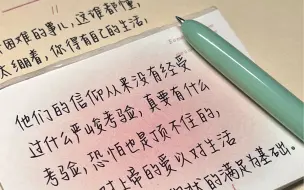 困难的事儿,这谁都懂
太绷着,你得有自己的生活,
他们的信仰从来没有经受
过什么严峻考验,真要有什么
考验,恐怕也是顶不住的,
对上帝的爱以对生活
的满足有基础。